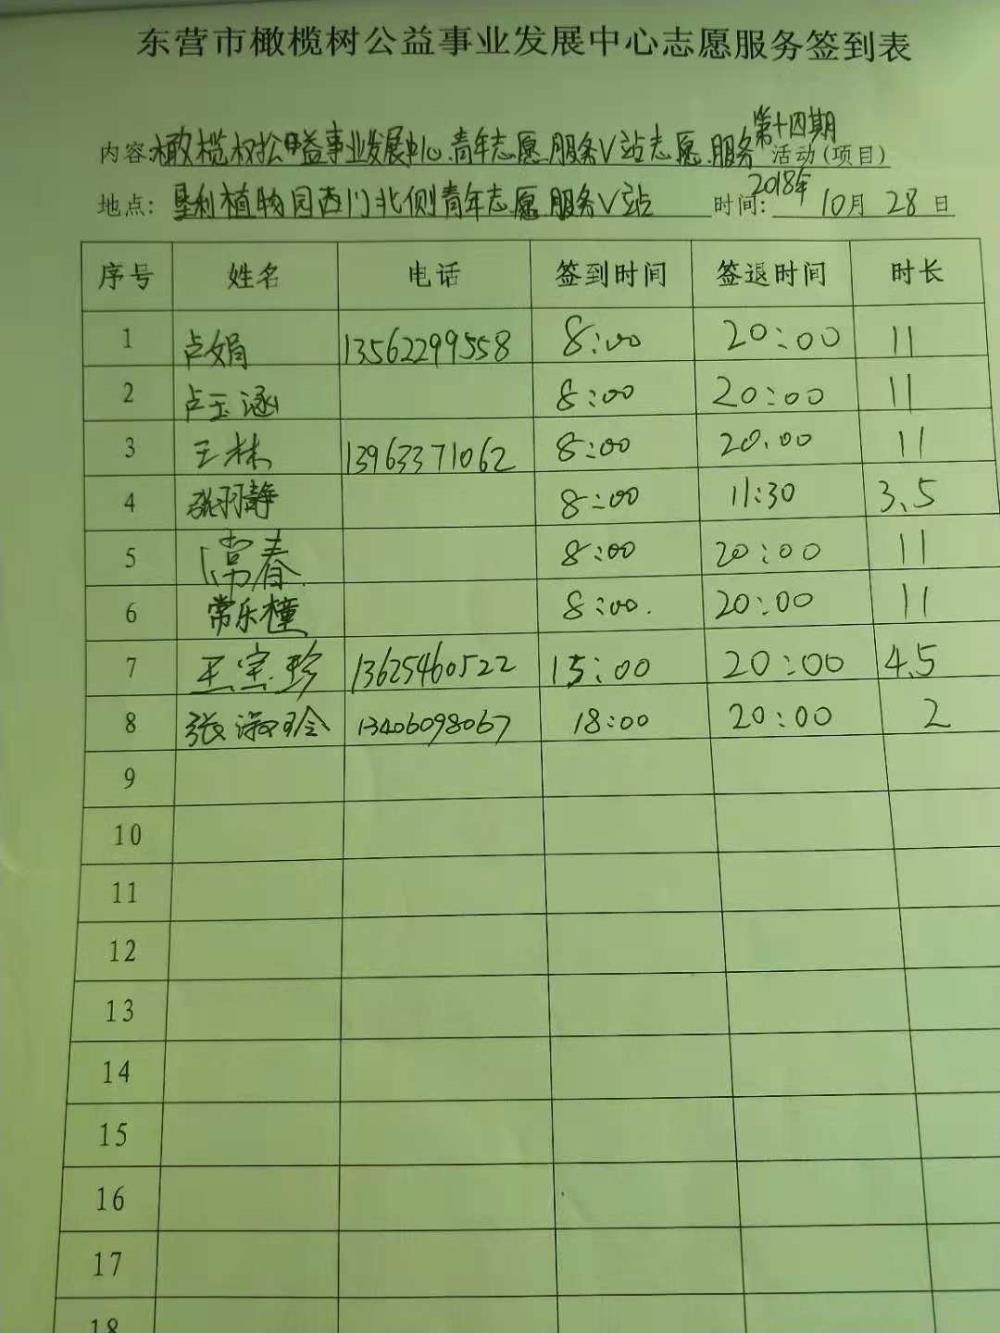 东营市橄榄树公益事业发展中心志愿服务签到表
第十四期
内容:橄榄树公益事业发展中心青年志愿服务V站志愿服务活动(项目)
2018年
地点:垦利植物园西门北侧青年志愿服务V站 时间:10月28日
序号 姓名 电话 签到时间 签退时间 时长
1 卢娟 13562299558 8:00 20:00 11
2 卢玉涵 8:00 20:00 11
3 王林 13963371062 8:00 20:00 11
4 张羽静 8:00 11:30 3.5
5 常春 8:00 20:00 11
6 常乐橦 8:00 20:00 11
7 王宝珍 13625460522 15:00 20:00 4.5
8 张淑玲 13406098067 18:00 20:00 2
9
10
11
12
13
14
15
16
17
18